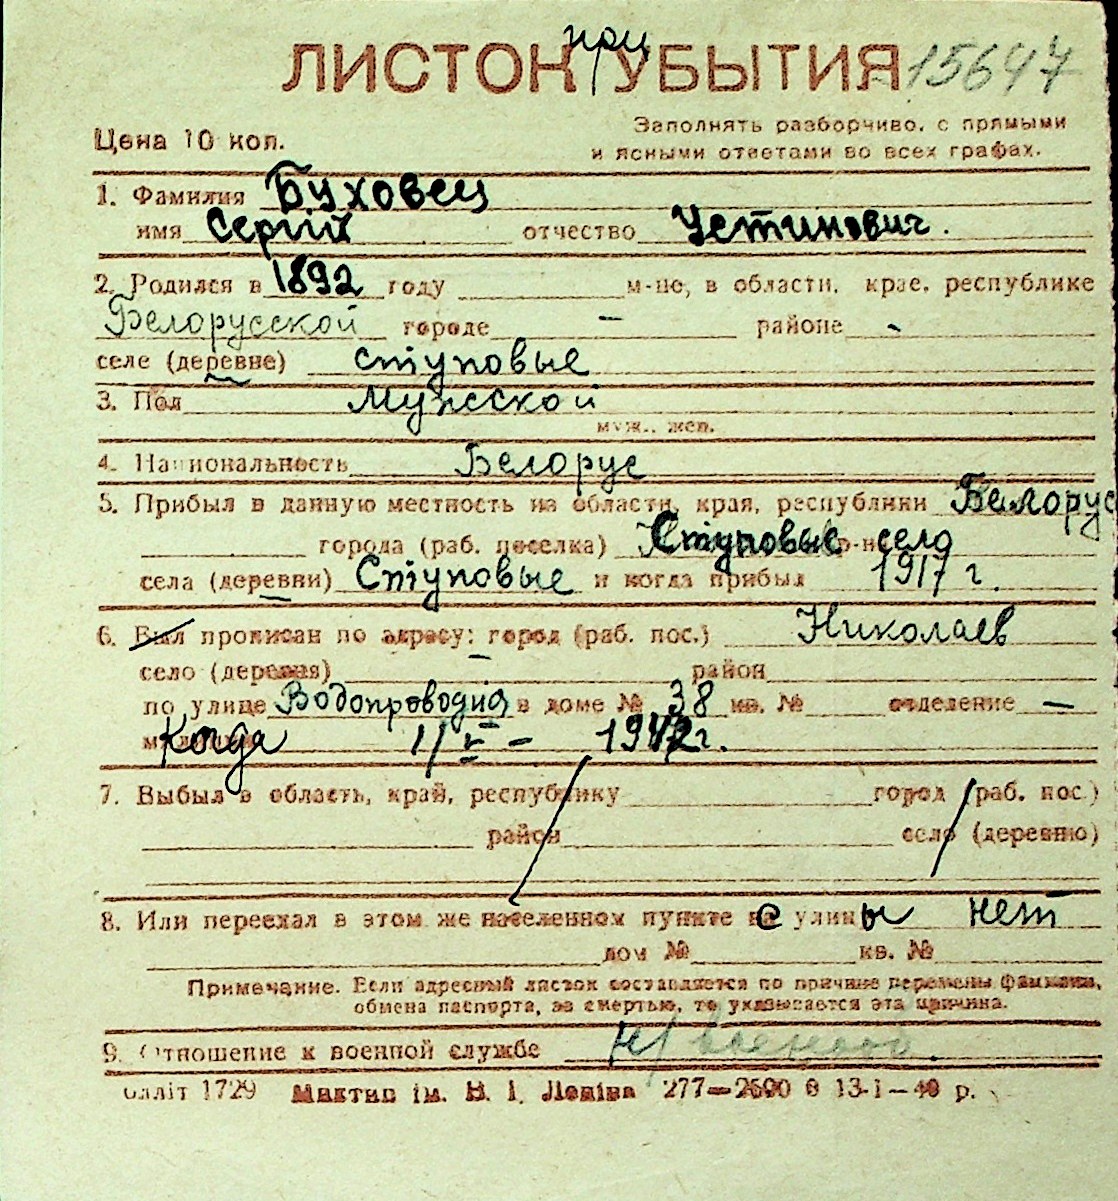 при
ЛИСТОК УБЫТИЯ 15647
Цена 10 коп.
Заполнять разборчиво, с прямыми
и ясными ответами во всех графах.
1. Фамилия Буховец
имя Сергій отчество Устинович.
2. Родился в 1892 году м-це, в области, крае, республике
Белорусской городе – районе -
селе (деревне) ступовые
3. Пол Мужской
муж., жен.
4. Национальность Белорус
5. Прибыл в данную местность из области, края, республики Белорус
города (раб. поселка) Ступовые р-на село
села (деревни) Ступовые и когда прибыл 1917 г.
6. Был прописан по адресу: город (раб. пос.) Николаев
село (деревня) район
по улице Водопроводня в доме № 38 кв. № отделение —
Когда 1/V – 1942 г.
7. Выбыл в область, край, республику город (раб. пос.)
район село (деревню)
8. Или переехал в этом же населенном пункте с улицы нет
дом № кв. №
Примечание. Если адресный листок составляется по причине перемены фамилии,
обмена паспорта, за смертью, то указывается эта причина.
9. Отношение к военной службе н/военнооб.
олліт 1729 Миктип ім. В. І. Леніна 277—2690 б 13-1—40 р.